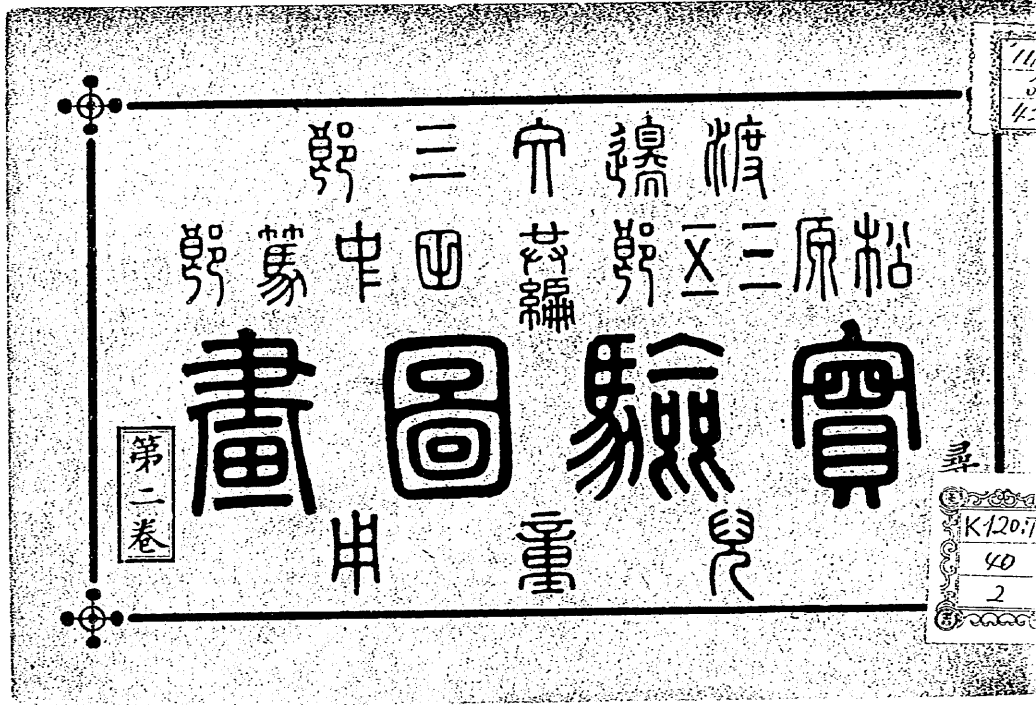 渡邊文三郎
松原三五郎
共編
田中篤郎
實驗圖畫
兒童用
第二卷
尋
40
2